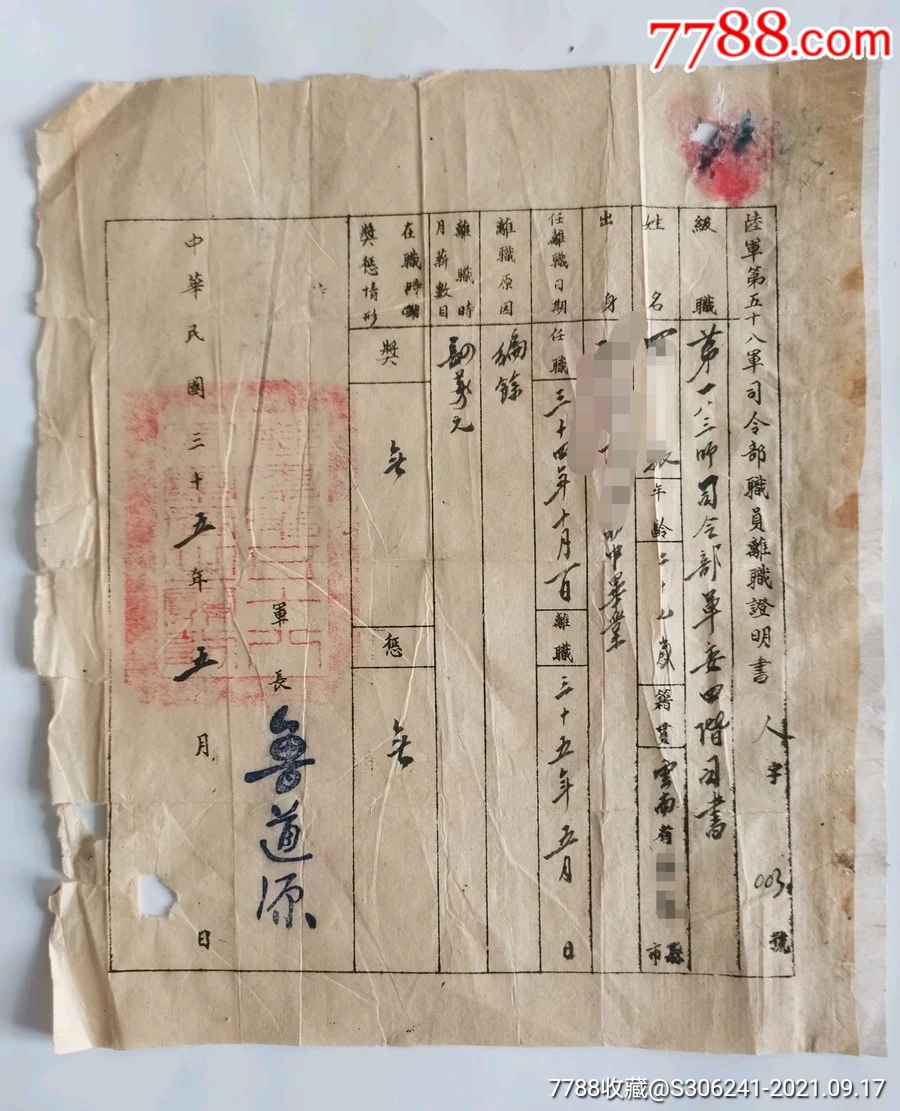 7788.com
陸軍第五十八軍司令部職員離職證明書 人字 003 號
級職 第一八三師司令部軍委四階司書
姓名 年齡 二十七歲 籍貫 雲南省 縣市
出身 畢業
任離職日期 任職 三十四年十月一日 離職 三十五年五月 日
離職原因 編餘
離職時月薪數目
在職時期獎懲情形 獎 無 懲 無
軍長 魯道源
中華民國三十五年五月 日
7788收藏@S306241-2021.09.17